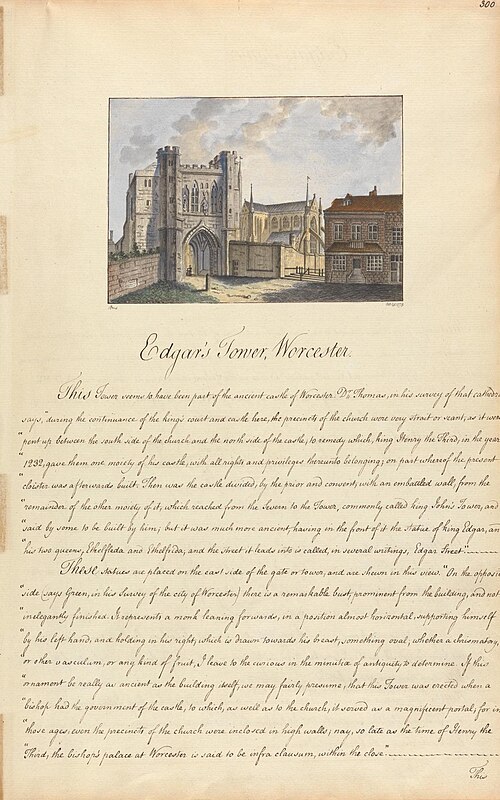 300
Edgar's Tower, Worcester.
This Tower seems to have been part of the ancient castle of Worcester. Dr. Thomas, in his survey of that cathedral
says, "during the continuance of the king's court and castle here, the precincts of the church were very strait or scant, as it were
"pent up between the south side of the church and the north side of the castle; to remedy which, king Henry the Third, in the year
"1232, gave them one moiety of his castle, with all rights and privileges thereunto belonging; on part whereof the present
"cloister was afterwards built. Then was the castle divided, by the prior and convent, with an embattled wall, from the
"remainder of the other moiety of it, which reached from the Severn to the Tower, commonly called king John's Tower, and
"said by some to be built by him; but it was much more ancient, having in the front of it the Statue of king Edgar, and
"his two queens, Ethelfleda and Ethelfrida; and the street it leads into is called, in several writings, Edgar Street."
These statues are placed on the east side of the gate or tower, and are shewn in this view. "On the opposite
"side (says Green, in his Survey of the city of Worcester) there is a remarkable bust, prominent from the building, and not
"inelegantly finished. It represents a monk leaning forwards, in a position almost horizontal, supporting himself
"by his left hand, and holding in his right, which is drawn towards his breast, something oval; whether a chrismatory,
"or other vasculum, or any kind of fruit, I leave to the curious in the minutiæ of antiquity to determine. If this
"ornament be really as ancient as the building itself, we may fairly presume, that this Tower was erected when a
"bishop had the government of the castle, to which, as well as to the church, it served as a magnificent portal; for in
"those ages, even the precincts of the church were inclosed in high walls; nay, so late as the time of Henry the
"Third, the bishop's palace at Worcester is said to be infra clausum, within the close"
This